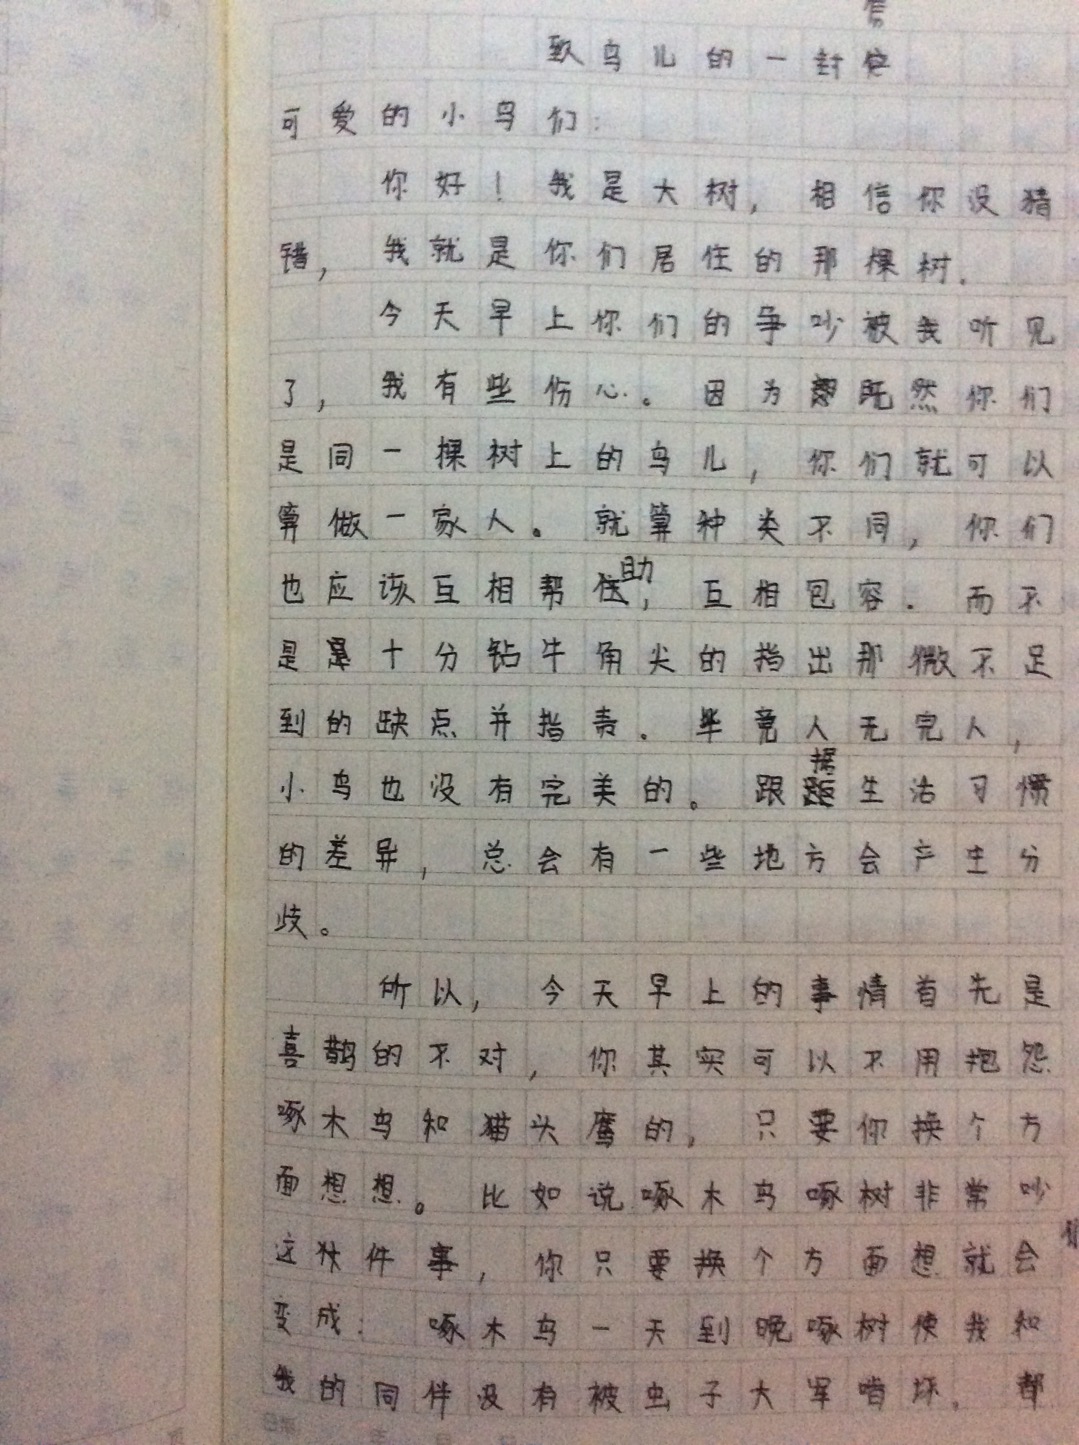 致鸟儿的一封信
可爱的小鸟们:
你好！我是大树，相信你没猜
错，我就是你们居住的那棵树.
今天早上你们的争吵被我听见
了，我有些伤心。因为既然你们
是同一棵树上的鸟儿，你们就可以
算做一家人。就算种类不同，你们
也应该互相帮助，互相包容.而不
是十分钻牛角尖的指出那微不足
到的缺点并指责。毕竟人无完人，
小鸟也没有完美的。跟据生活习惯
的差异，总会有一些地方会产生分
歧。
所以，今天早上的事情首先是
喜鹊的不对，你其实可以不用抱怨
啄木鸟和猫头鹰的，只要你换个方
面想想。比如说啄木鸟啄树非常吵
这件事，你只要换个方面想就会
变成：啄木鸟一天到晚啄树使我和
我的同伴没有被虫子大军啃坏。都